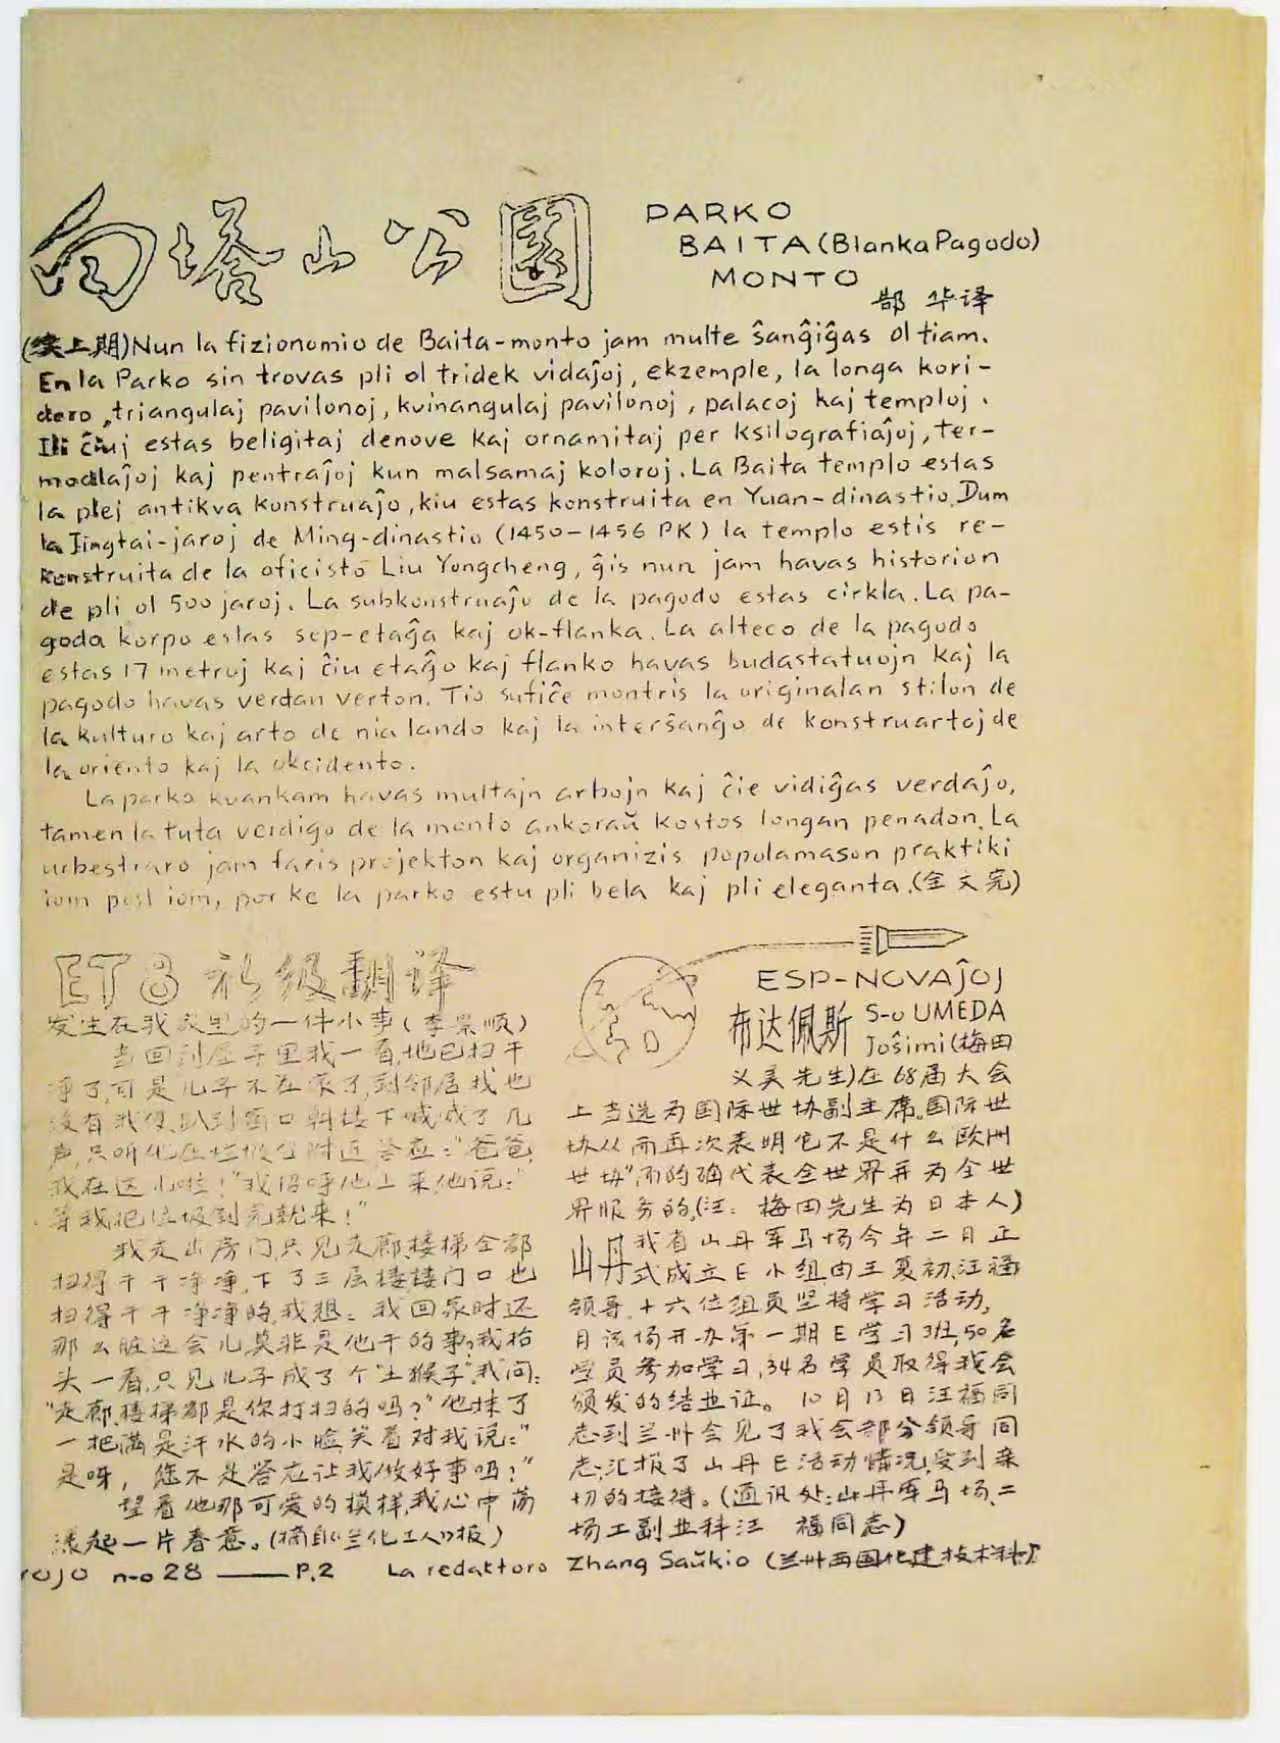 白塔山公園
DARKO
BAITA (Blanka Pagodo)
MONTO
郜 华译
(续上期) Nun la fizionomio de Baita-monto jam multe ŝanĝiĝas ol tiam.
En la Parko sin trovas pli ol tridek vidaĵoj, ekzemple, la longa kori-
doro, triangulaj pavilonoj, kvinangulaj pavilonoj, palacoj kaj temploj.
Ili ĉiuj estas beligitaj denove kaj ornamitaj per ksilografiaĵoj, ter-
modlaĵoj kaj pentraĵoj kun malsamaj koloroj. La Baita templo estas
la plej antikva konstruaĵo, kiu estas konstruita en Yuan-dinastio. Dum
la Jingtai-jaroj de Ming-dinastio (1450-1456 PK) la templo estis re-
konstruita de la oficisto Liu Yongcheng, ĝis nun jam havas historion
de pli ol 500 jaroj. La subkonstruaĵo de la pagodo estas cirkla. La pa-
goda korpo estas sep-etaĝa kaj ok-flanka. La alteco de la pagodo
estas 17 metroj kaj ĉiu etaĝo kaj flanko havas budastatuojn kaj la
pagodo havas verdan verton. Tio sufiĉe montris la originalan stilon de
la kulturo kaj arto de nia lando kaj la interŝanĝo de konstruartoj de
la oriento kaj la okcidento.
La parko kvankam havas multajn arbojn kaj ĉie vidiĝas verdaĵo,
tamen la tuta verdigo de la monto ankoraŭ kostos longan penadon. La
urbestraro jam faris projekton kaj organizis popolamason praktiki
iom post iom, por ke la parko estu pli bela kaj pli eleganta. (全文完)
ET 8 初级翻译
发生在我家里的一件小事 (李景顺)
当回到屋子里我一看,地已扫干
净了,可是儿子不在家了,到邻居找也
没有找便趴到窗口斜楼下喊成了几
声,只听他在垃圾台附近答应:"爸爸,
我在这儿啦!"我招呼他上来,他说:"
等我把垃圾倒完就来!"
我走出房门,只见走廊,楼梯全部
扫得干干净净,下了三层楼,楼门口也
扫得干干净净的,我想:我回家时还
那么脏这会儿莫非是他干的事?我抬
头一看,只见儿子成了个"土猴子",我问:
"走廊,楼梯都是你打扫的吗?"他抹了
一把满是汗水的小脸笑着对我说:"
是呀,您不是答应让我做好事吗?"
望着他那可爱的模样,我心中荡
漾起一片春意。(摘自《兰化工人》报)
ESP-NOVAĴOJ
布达佩斯 S-o UMEDA
Joŝimi (梅田
义美先生)在68届大会
上当选为国际世协副主席。国际世
协从而再次表明它不是什么欧洲
世协"而的确代表全世界并为全世
界服务的,(注:梅田先生为日本人)
山丹 我省山丹军马场今年二月正
式成立E小组,由王夏初,汪福
领导,十六位组员坚持学习活动,
月该场开办第一期E学习班,50名
学员参加学习,34名学员取得我会
颁发的结业证。10月13日汪福同
志到兰州会见了我会部分领导同
志,汇报了山丹E活动情况,受到亲
切的接待。(通讯处:山丹军马场二
场工副业科汪 福同志)
ROJO n-o 28 —— P.2 La redaktoro Zhang Saŭkio (兰州西固化建技术科)